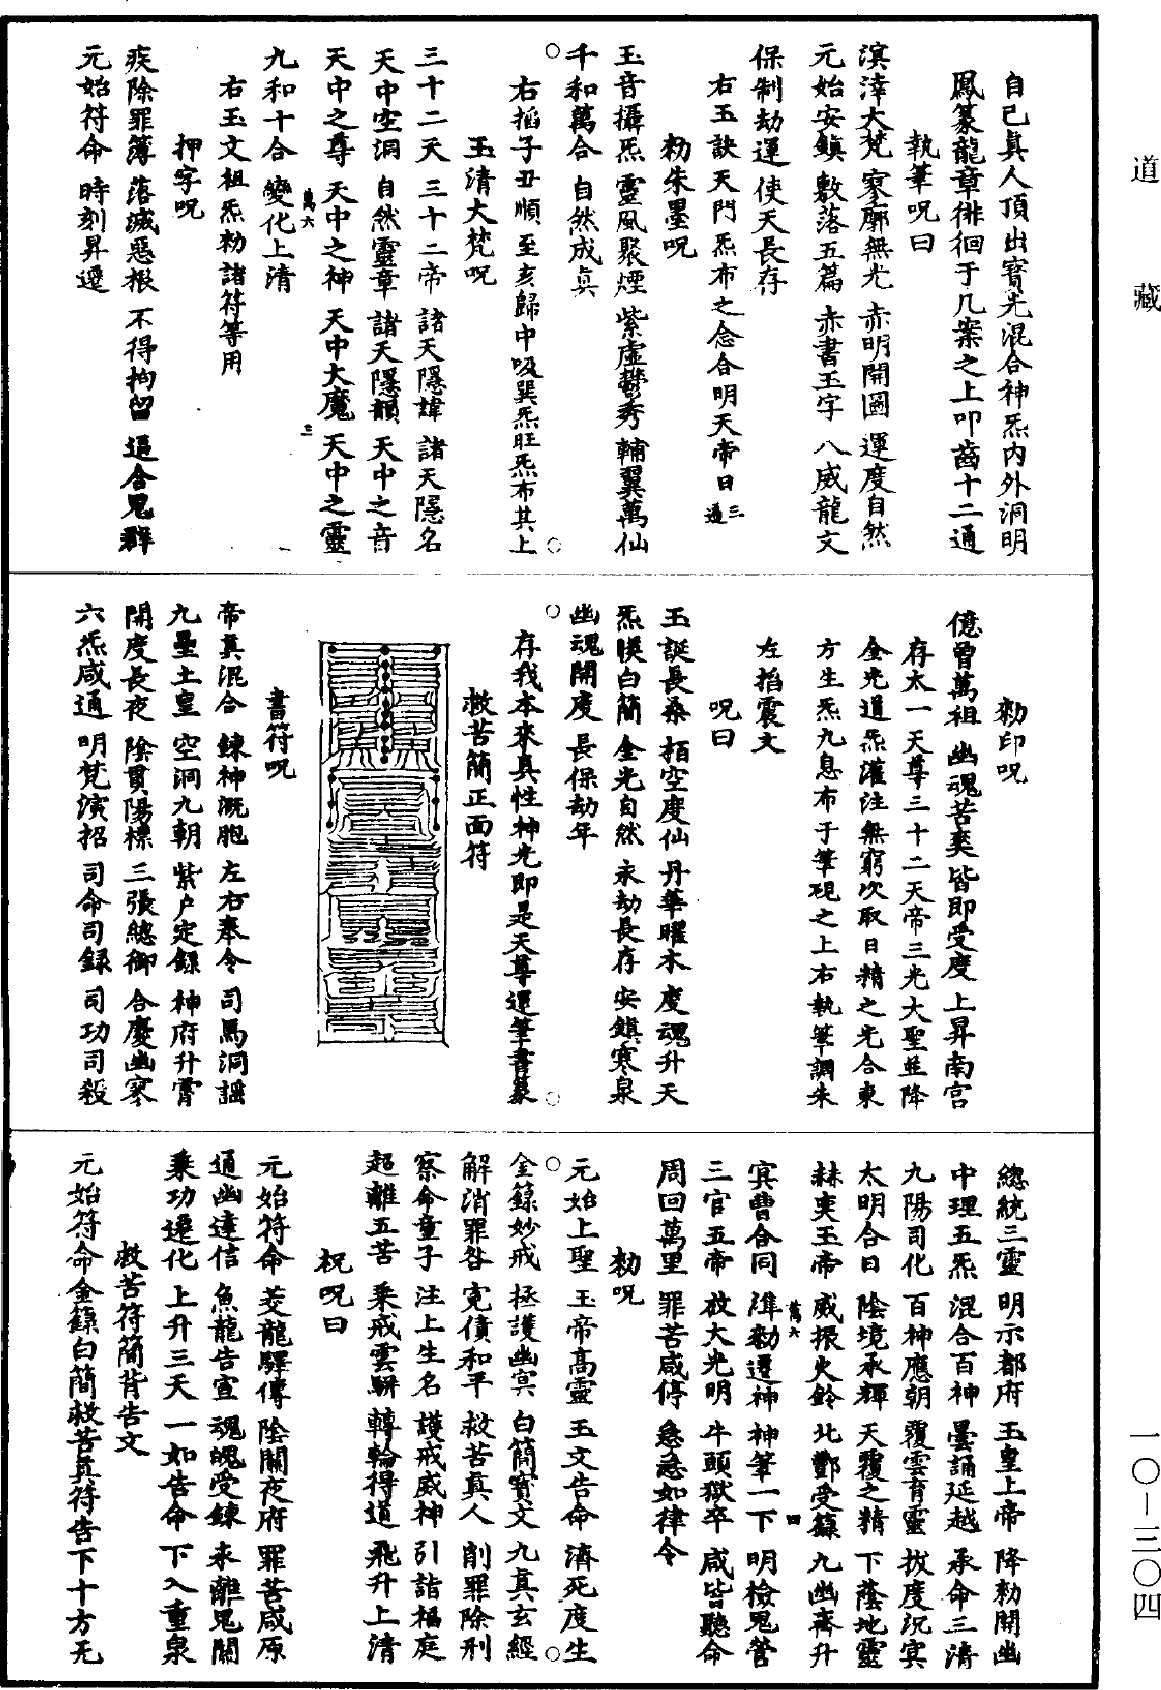 道藏
自己真人頂出寶光混合神炁内外洞明
鳳篆龍章徘徊于几案之上叩齒十二通
執筆呪曰
溟涬大梵 寥廓無光 赤明開圖 運度自然
元始安鎮 敷落五篇 赤書玉字 八威龍文
保制劫運 使天長存
右玉訣天門炁布之念合明天帝日三遍
勑朱墨呪
玉音攝炁 靈風聚煙 紫虛鬱秀 輔翼萬仙
千和萬合 自然成真
右掐子丑順至亥歸中吸巽炁旺炁布其上
玉清大梵呪
三十二天 三十二帝 諸天隱諱 諸天隱名
天中空洞 自然靈章 諸天隱韻 天中之音
天中之尊 天中之神 天中大魔 天中之靈
九和十合 變化上清
萬六 三
右玉文祖炁勑諸符等用
押字呪
疾除罪簿 落滅惡根 不得拘留 逼合鬼群
元始符命 時刻昇遷
勑印呪
億曾萬祖 幽魂苦爽 皆即受度 上昇南宮
存太一天尊三十二天帝三光大聖並降
金光道炁灌注無窮次取日精之光合東
方生炁九息布于筆硯之上右執筆調朱
左掐震文
呪曰
玉誕長桑 栢空度仙 丹華曜木 度魂升天
炁暎白簡 金光自然 永劫長存 安鎮寒泉
幽魂開度 長保劫年
存我本來真性神光即是天尊運筆書篆
救苦簡正面符
書符呪
帝真混合 鍊神溉胞 左右奉令 司馬洞謡
九壘土皇 空洞九朝 紫户定錄 神府升霄
開度長夜 陰貫陽標 三張總御 合慶幽寒
六炁咸通 明梵演招 司命司錄 司功司殺
總統三靈 明示都府 玉皇上帝 降勑開幽
中理五炁 混合百神 曇誦延越 承命三清
九陽司化 百神應朝 覆雲育靈 拔度沉冥
太明合日 陰境承輝 天覆之精 下蔭地靈
赫奕玉帝 威振火鈴 北酆受籙 九幽齊升
萬六 四
冥曹合同 準勑遷神 神筆一下 明檢鬼營
三官五帝 放大光明 牛頭獄卒 咸皆聽命
周回萬里 罪苦咸停 急急如律令
勑呪
元始上聖 玉帝高靈 玉文告命 濟死度生
金籙妙戒 拯護幽冥 白簡寶文 九真玄經
解消罪咎 寃債和平 救苦真人 削罪除刑
察命童子 注上生名 護戒威神 引詣福庭
超離五苦 乘戒雲軿 轉輪得道 飛升上清
祝呪曰
元始符命 茭龍驛傳 陰關夜府 罪苦咸原
通幽達信 魚龍告宣 魂魄受鍊 永離鬼關
乘功遷化 上升三天 一如告命 下入重泉
救苦符簡背告文
元始符命金籙白簡救苦真符告下十方无
一〇—三〇四